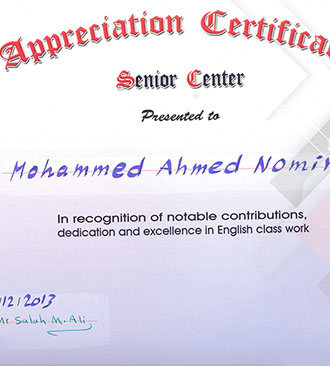 Appreciation Certifica
Senior Center
Presented to
Mohammed Ahmed Nomir
In recognition of notable contributions,
dedication and excellence in English class work
/12/2013
Mr. Salah M. Ali